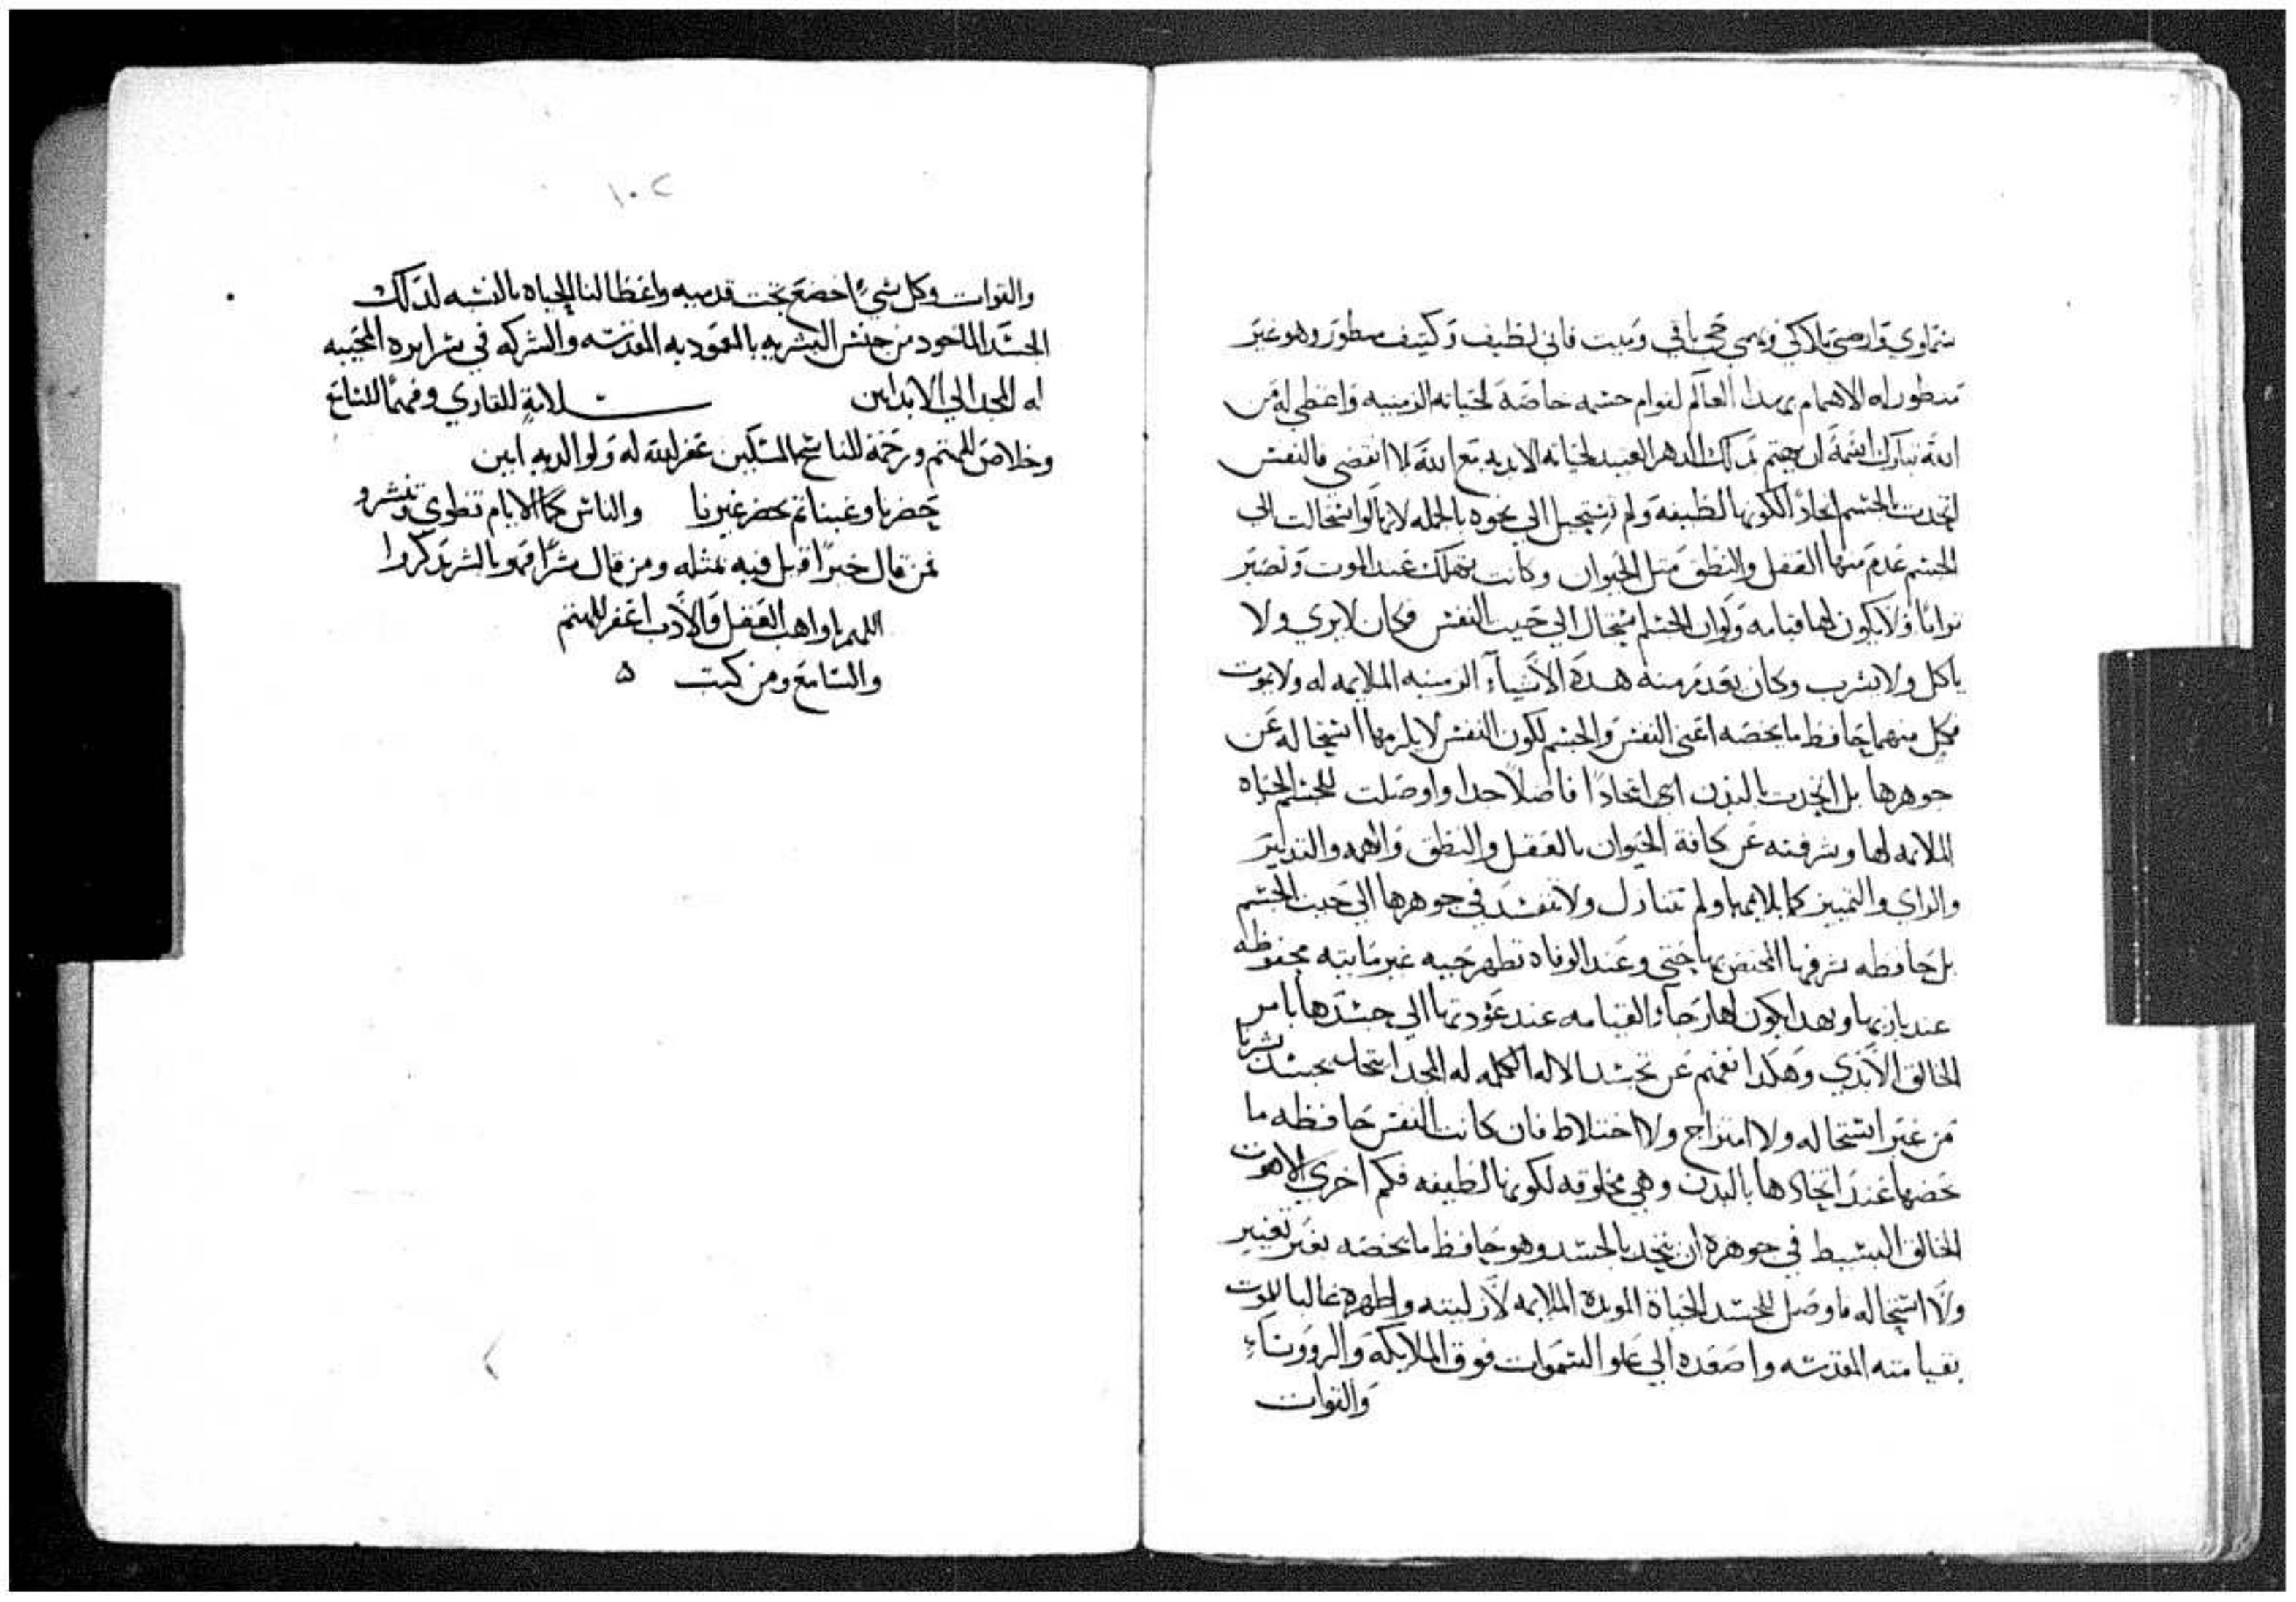 سماوي وارضي ملاكي وبهيمي حي باقي وميت فاني لطيف وكتيف مسطور وهو غير
مسطور له الاهمام بهدا العالم لقوام جسمه خاصة لحياته الزمنيه واعطي له من
الله تبارك اسمه ان يهتم بدلك الدهر العتيد لحياته الابديه مع الله لا انقضي فالنفس
اتحدت بالجسم اتحاد الكونها لطيفه ولم تستحيل الي نحوه بالجمله لانها لو استحالت الي
الجسم عدم منها العقل والنطق مثل الحيوان وكانت تهلك عند الموت وتصير
ترابا ولا يكون لها قيامه ولو ان الجسم استحال الي حيث النفس فكان لا يري ولا
ياكل ولا يشرب وكان يعدم منه هده الاشياء الزمنيه الملايمه له ولا يموت
فكل منهما حافظ ما يخصه اعني النفس والجسم لكون النفس لا يلزمها استحاله عن
جوهرها بل اتحدت بالبدن اي اتحادا فاضلا جدا واوصلت للجسم الحياه
الملايمه لها وشرفته عن كافة الحيوان بالعقل والنطق والهمه والتدبير
والراي والتمييز كما يلايمها ولم تتنازل ولا تفسد في جوهرها الي حيث الجسم
بل حافظه شرفها المختص بها حتي وعند الوفاه تظهر حيه غير مايته محفوظه
عند باريها وبهدا يكون لها رجا والقيامه عند عودتها الي جسدها بامر
الخالق الابدي وهكدا نفهم عن تجسد الاله الكلمه له المجد اتحد بجسد بشريا
من غير استحاله ولا امتزاج ولا اختلاط فان كانت النفس حافظه ما
يخصها عند اتحادها بالبدن وهي مخلوقه لكونها لطيفه فكم احري اللاهوت
الخالق البسيط في جوهره ان يتحد بالجسد وهو حافظ ما يخصه بغير تغيير
ولا استحاله فاوصل للجسد الحياة الموبده الملايمه لازليته واظهره غالبا للموت
بقيامته المقدسه واصعده الي علو السموات فوق الملايكه والرووساء
والقوات
١٠٢
والقوات وكل شيء اخضع تحت قدميه واعطا لنا الحياه بالنسبه لدلك
الجسد الماخود من جنس البشريه بالمعموديه المقدسه والشركه في سرايره المحييه
له المجد الي الابد امين سلامة للقاري وفهما للسامع
وخلاص للمهتم ورحمة للناسخ المسكين غفر الله له ولوالديه امين
حضرنا وغبنا ثم يحضر غيرنا والناس كما الايام تطوي وتنشرو
فمن قال خيرا قيل فيه بمثله ومن قال شرا فهو بالشر يدكروا
اللهم يا واهب العقل والادب اغفر للمهتم
والسامع ومن كتب ۵